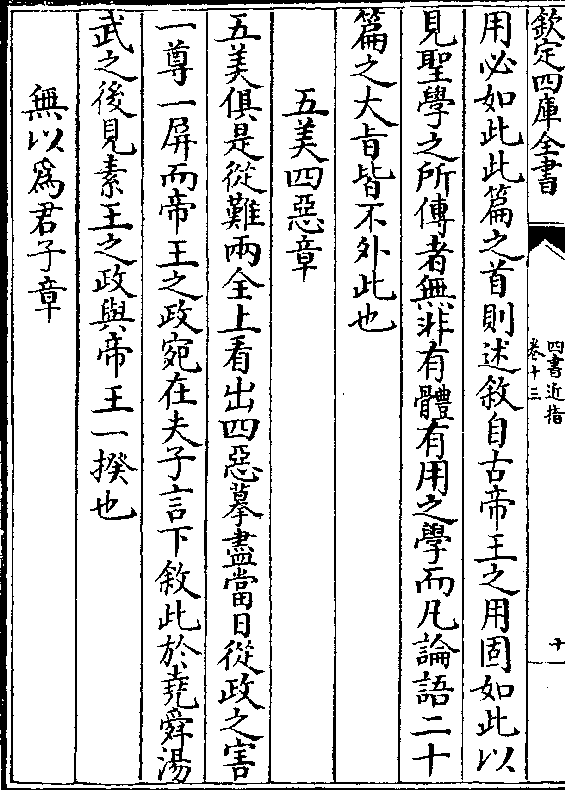 欽定四庫全書
四書近指
卷十三
十一
用必如此此篇之首則述敘自古帝王之用固如此以
見聖學之所傳者無非有體有用之學而凡論語二十
篇之大旨皆不外此也
五美四惡章
五美俱是從難兩全上看出四惡摹盡當日從政之害
一尊一屏而帝王之政宛在夫子言下敘此於堯舜湯
武之後見素王之政與帝王一揆也
無以為君子章